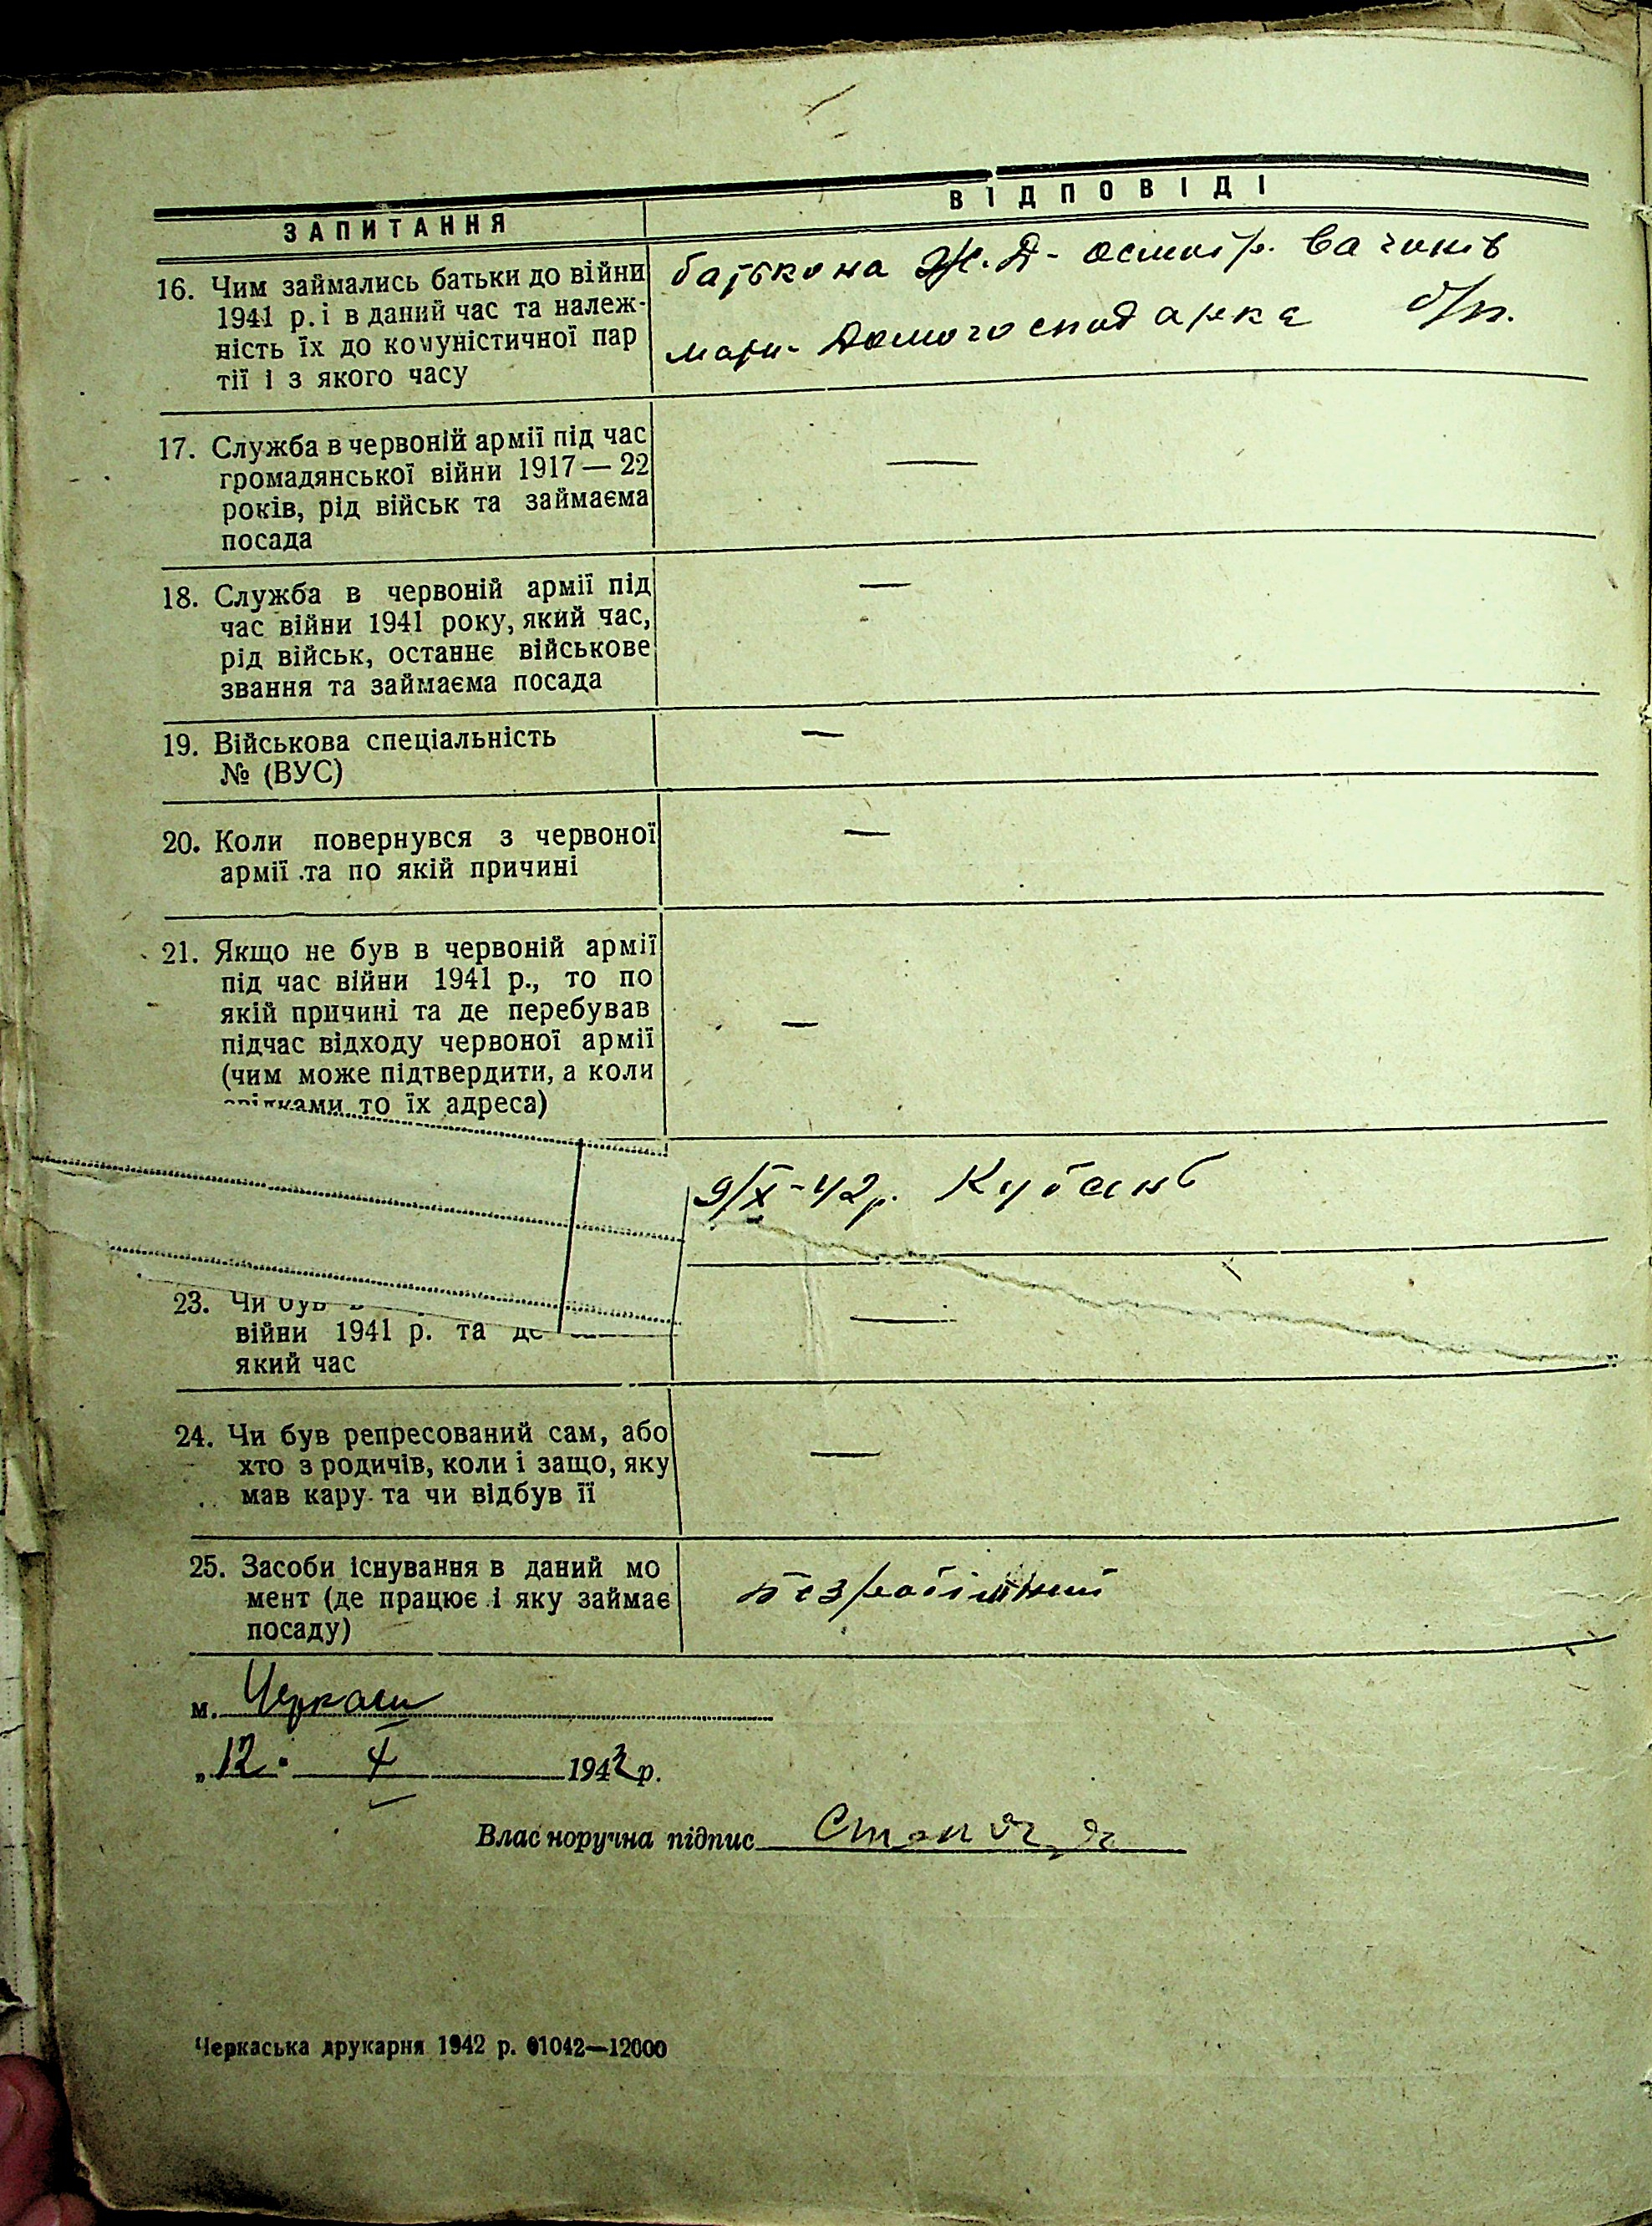 ЗАПИТАННЯ
ВІДПОВІДІ
16. Чим займались батьки до війни
1941 р. і в даний час та належ-
ність їх до комуністичної пар
тії і з якого часу
батько на Ж.Д- осмотр. вагонів
мати- Домогосподарка б/п.
17. Служба в червоній армії під час
громадянської війни 1917—22
років, рід військ та займаєма
посада
—
18. Служба в червоній армії під
час війни 1941 року, який час,
рід військ, останнє військове
звання та займаєма посада
—
19. Військова спеціальність
№ (ВУС)
—
20. Коли повернувся з червоної
армії та по якій причині
—
21. Якщо не був в червоній армії
під час війни 1941 р., то по
якій причині та де перебував
підчас відходу червоної армії
(чим може підтвердити, а коли
свідками то їх адреса)
—
9/X-42р. Кубань
23. Чи був в
війни 1941 р. та де
який час
—
24. Чи був репресований сам, або
хто з родичів, коли і защо, яку
мав кару та чи відбув її
—
25. Засоби існування в даний мо
мент (де працює і яку займає
посаду)
безробітний
м. Черкаси
„12" 1942 р.
Власноручна підпис
Черкаська друкарня 1942 р. 01042—12000